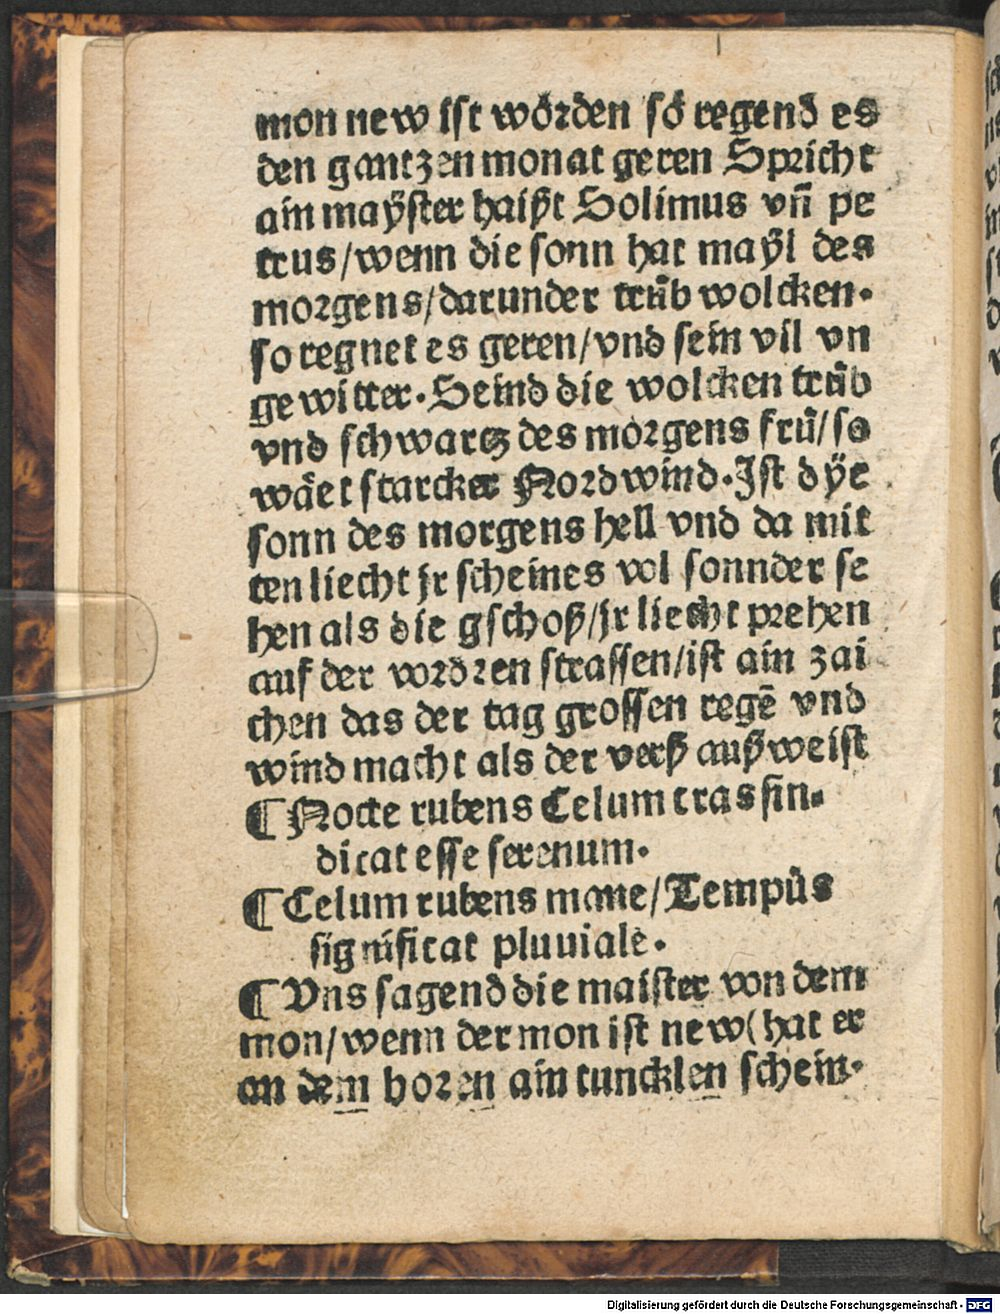 mon new ist wordẽn so regend es
den gantzen monat geren Spricht
ain maÿster haißt Solimus vñ pe
trus/wenn die sonn hat maÿl des
morgens/darunder trůb wolcken.
so regnet es geren/vnd sein vil vn
gewitter. Seind die wolcken trůb
vnd schwartz des morgens frů/so
wäet starcker Nordwind. Ist dÿe
sonn des morgens hell vnd da mit
ten liecht jr scheines vol sonnder se
hen als die gschoß/jr liecht prehen
auf der vordren strassen/ist ain zai
chen das der tag grossen regē vnd
wind macht als der verß außweist
¶ Nocte rubens Celum cras sin-
dicat esse serenum.
¶ Celum rubens mane/Tempůs
significat pluuiale.
¶ Vns sagend die maister von dem
mon/wenn der mon ist new(hat er
an dem horen ain tuncklen schein.
Digitalisierung gefördert durch die Deutsche Forschungsgemeinschaft - DFG